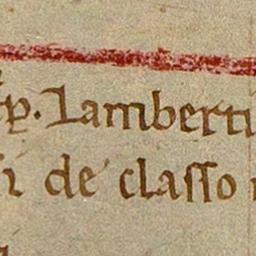 Lamberti
de classo